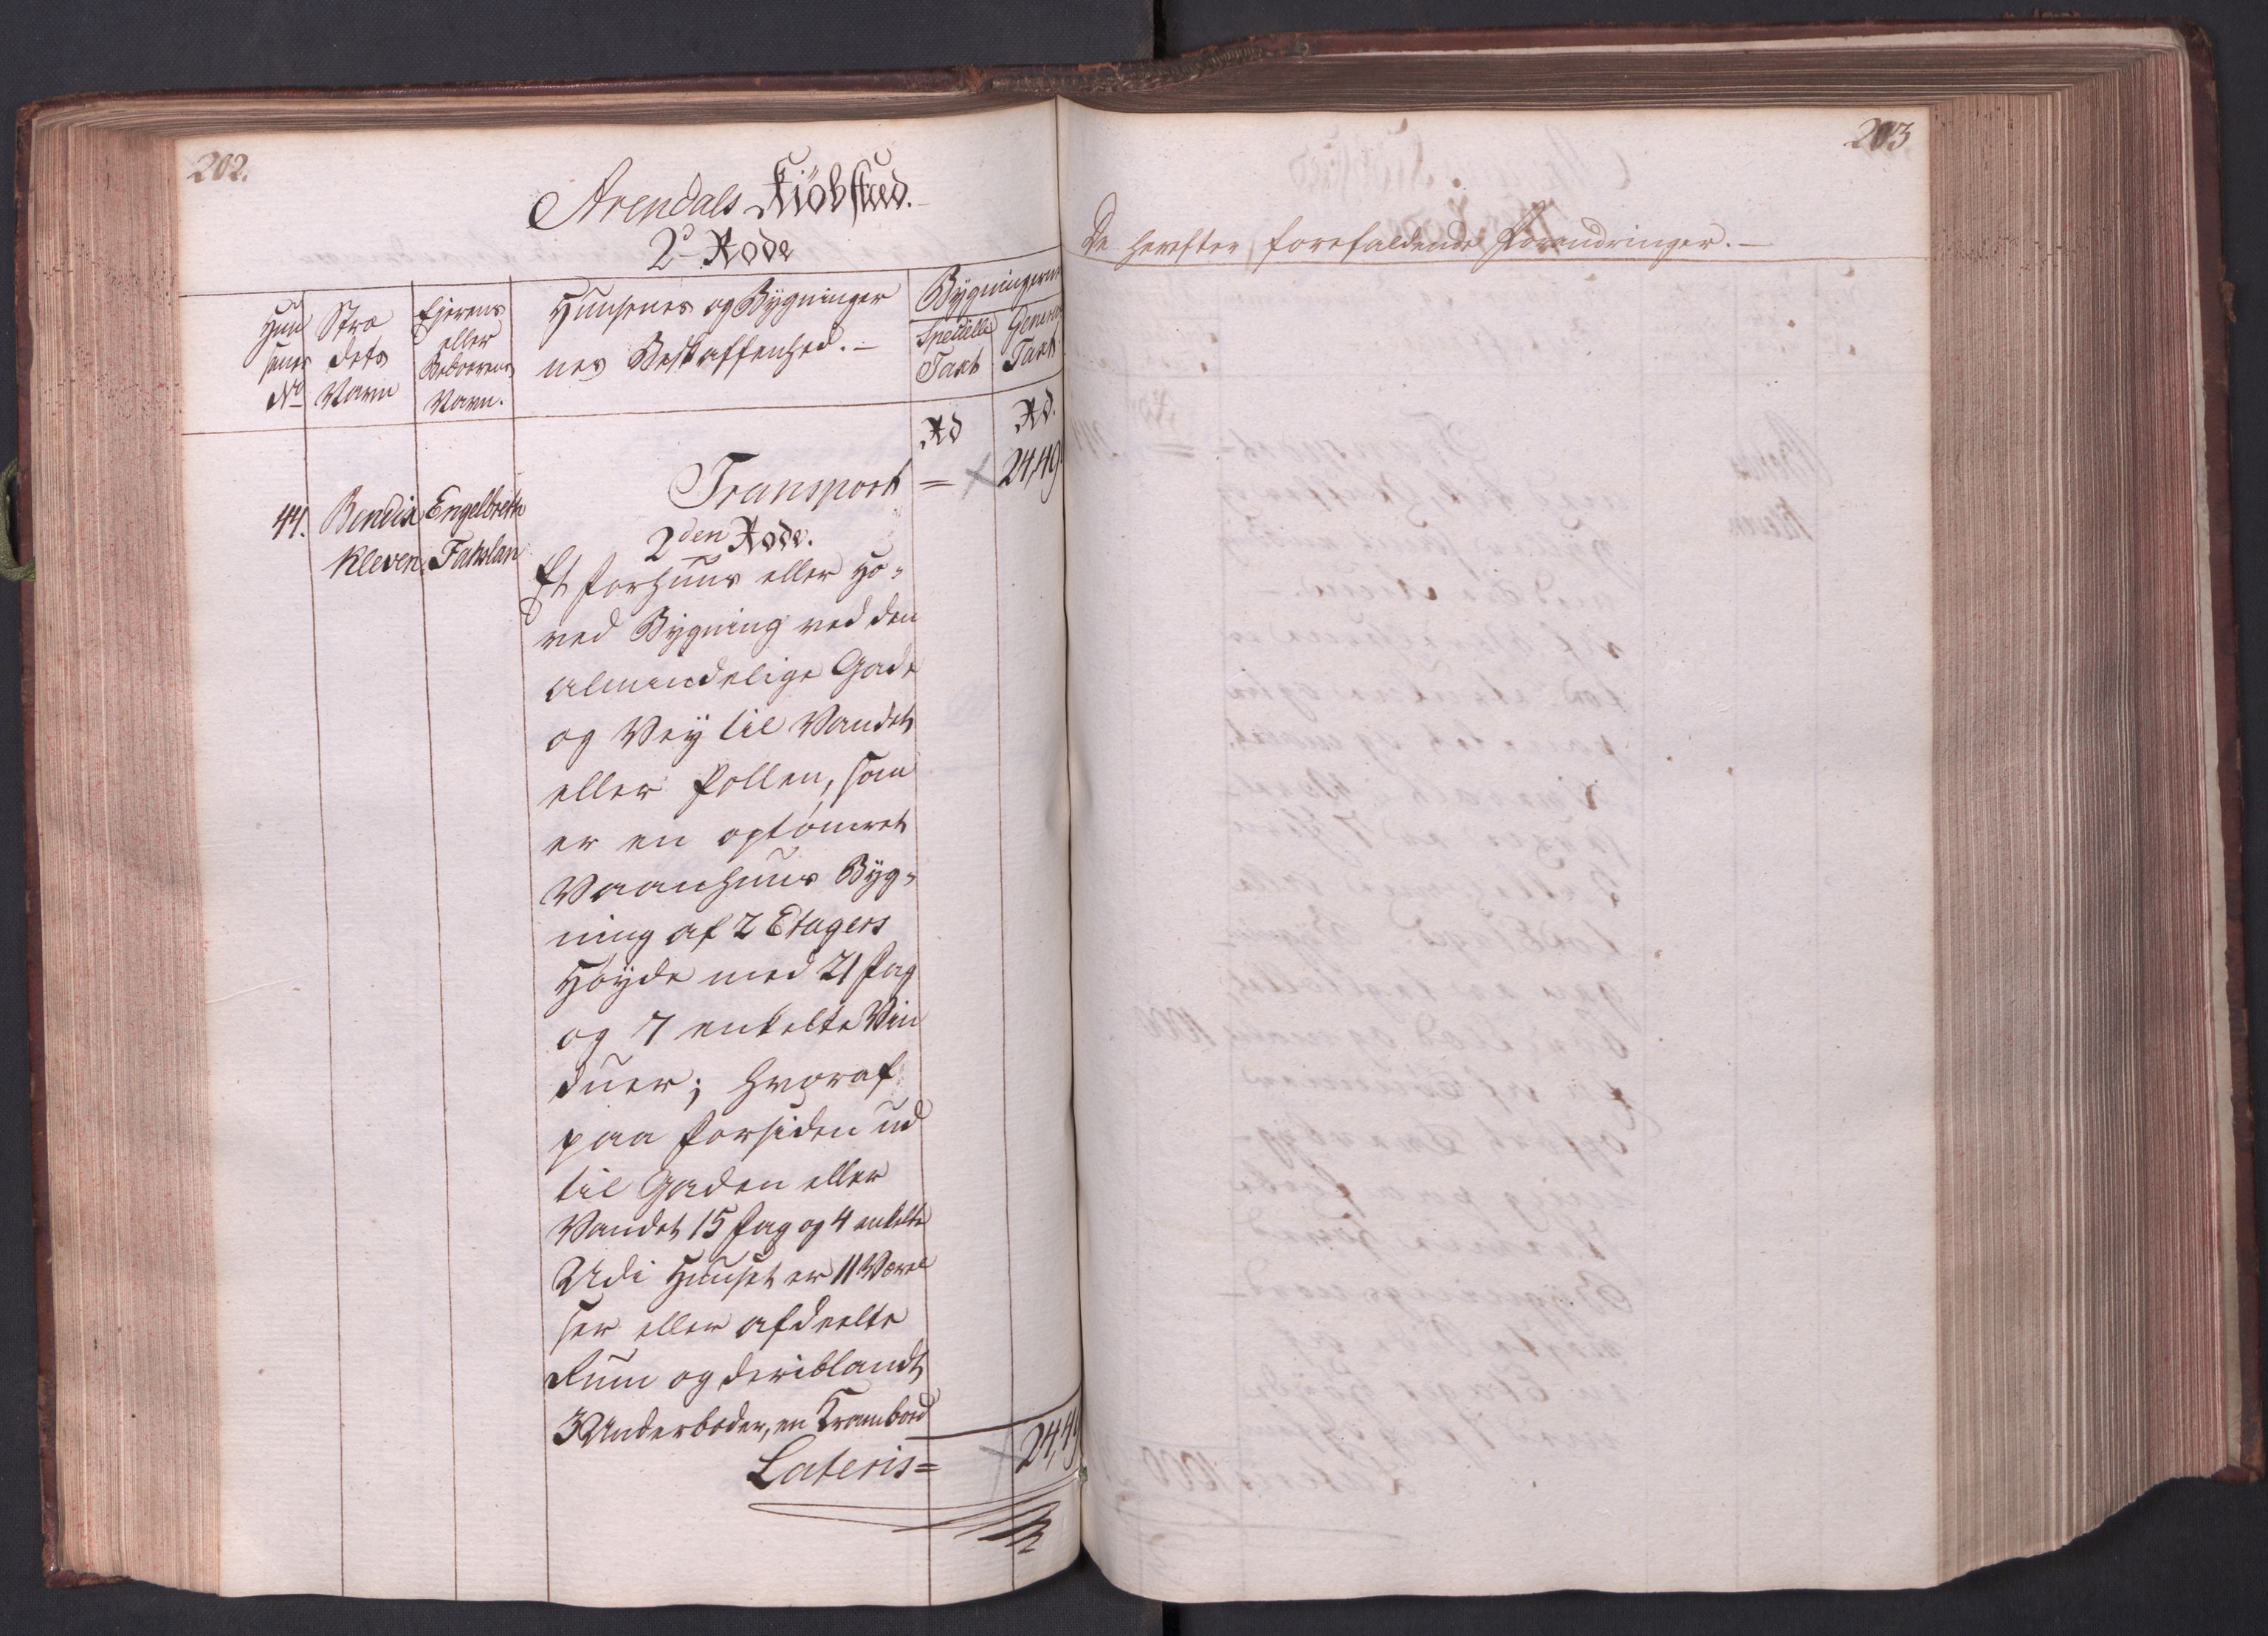 202.
Arendals Kiöbstæd.
2d Rode
Huu
senes
No
Stræ
dets
Navn
Ejerens
eller
Beboerens
Navn.
Huusenes og Bygninger
nes Beskaffenhed.-
Bygningernes
Specielle
Taxt
General
Taxt
Rd
Rd.
Transport = 24,49
44.
Bendix
Kleven.
Engelbreth
Fahslan
2den Rode.
Et Forhuus eller Ho-
ved Bygning ved den
almindelige Gade
og Vey til Vandet
eller Pollen, som
er en optömret
Vaanhuus Byg-
ning af 2 Etagers
Höyde med 21 Fag
og 7 enkelte Vin
duer; hvoraf
paa Forsiden ud
til Gaden eller
Vandet 15 Fag og 4 enkelte
Udi Huuset er 11 Værel
ser eller afdeelte
Rum og deriblandt
3 Underboder, en Krambod
Lateris= 24,49
203
De herefter forefaldende Forandringer.-